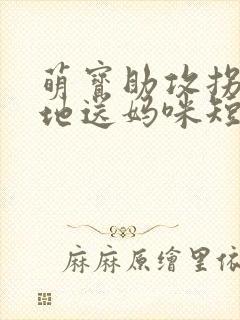 萌寶助攻拐
地送媽咪短
麻麻原繪里依